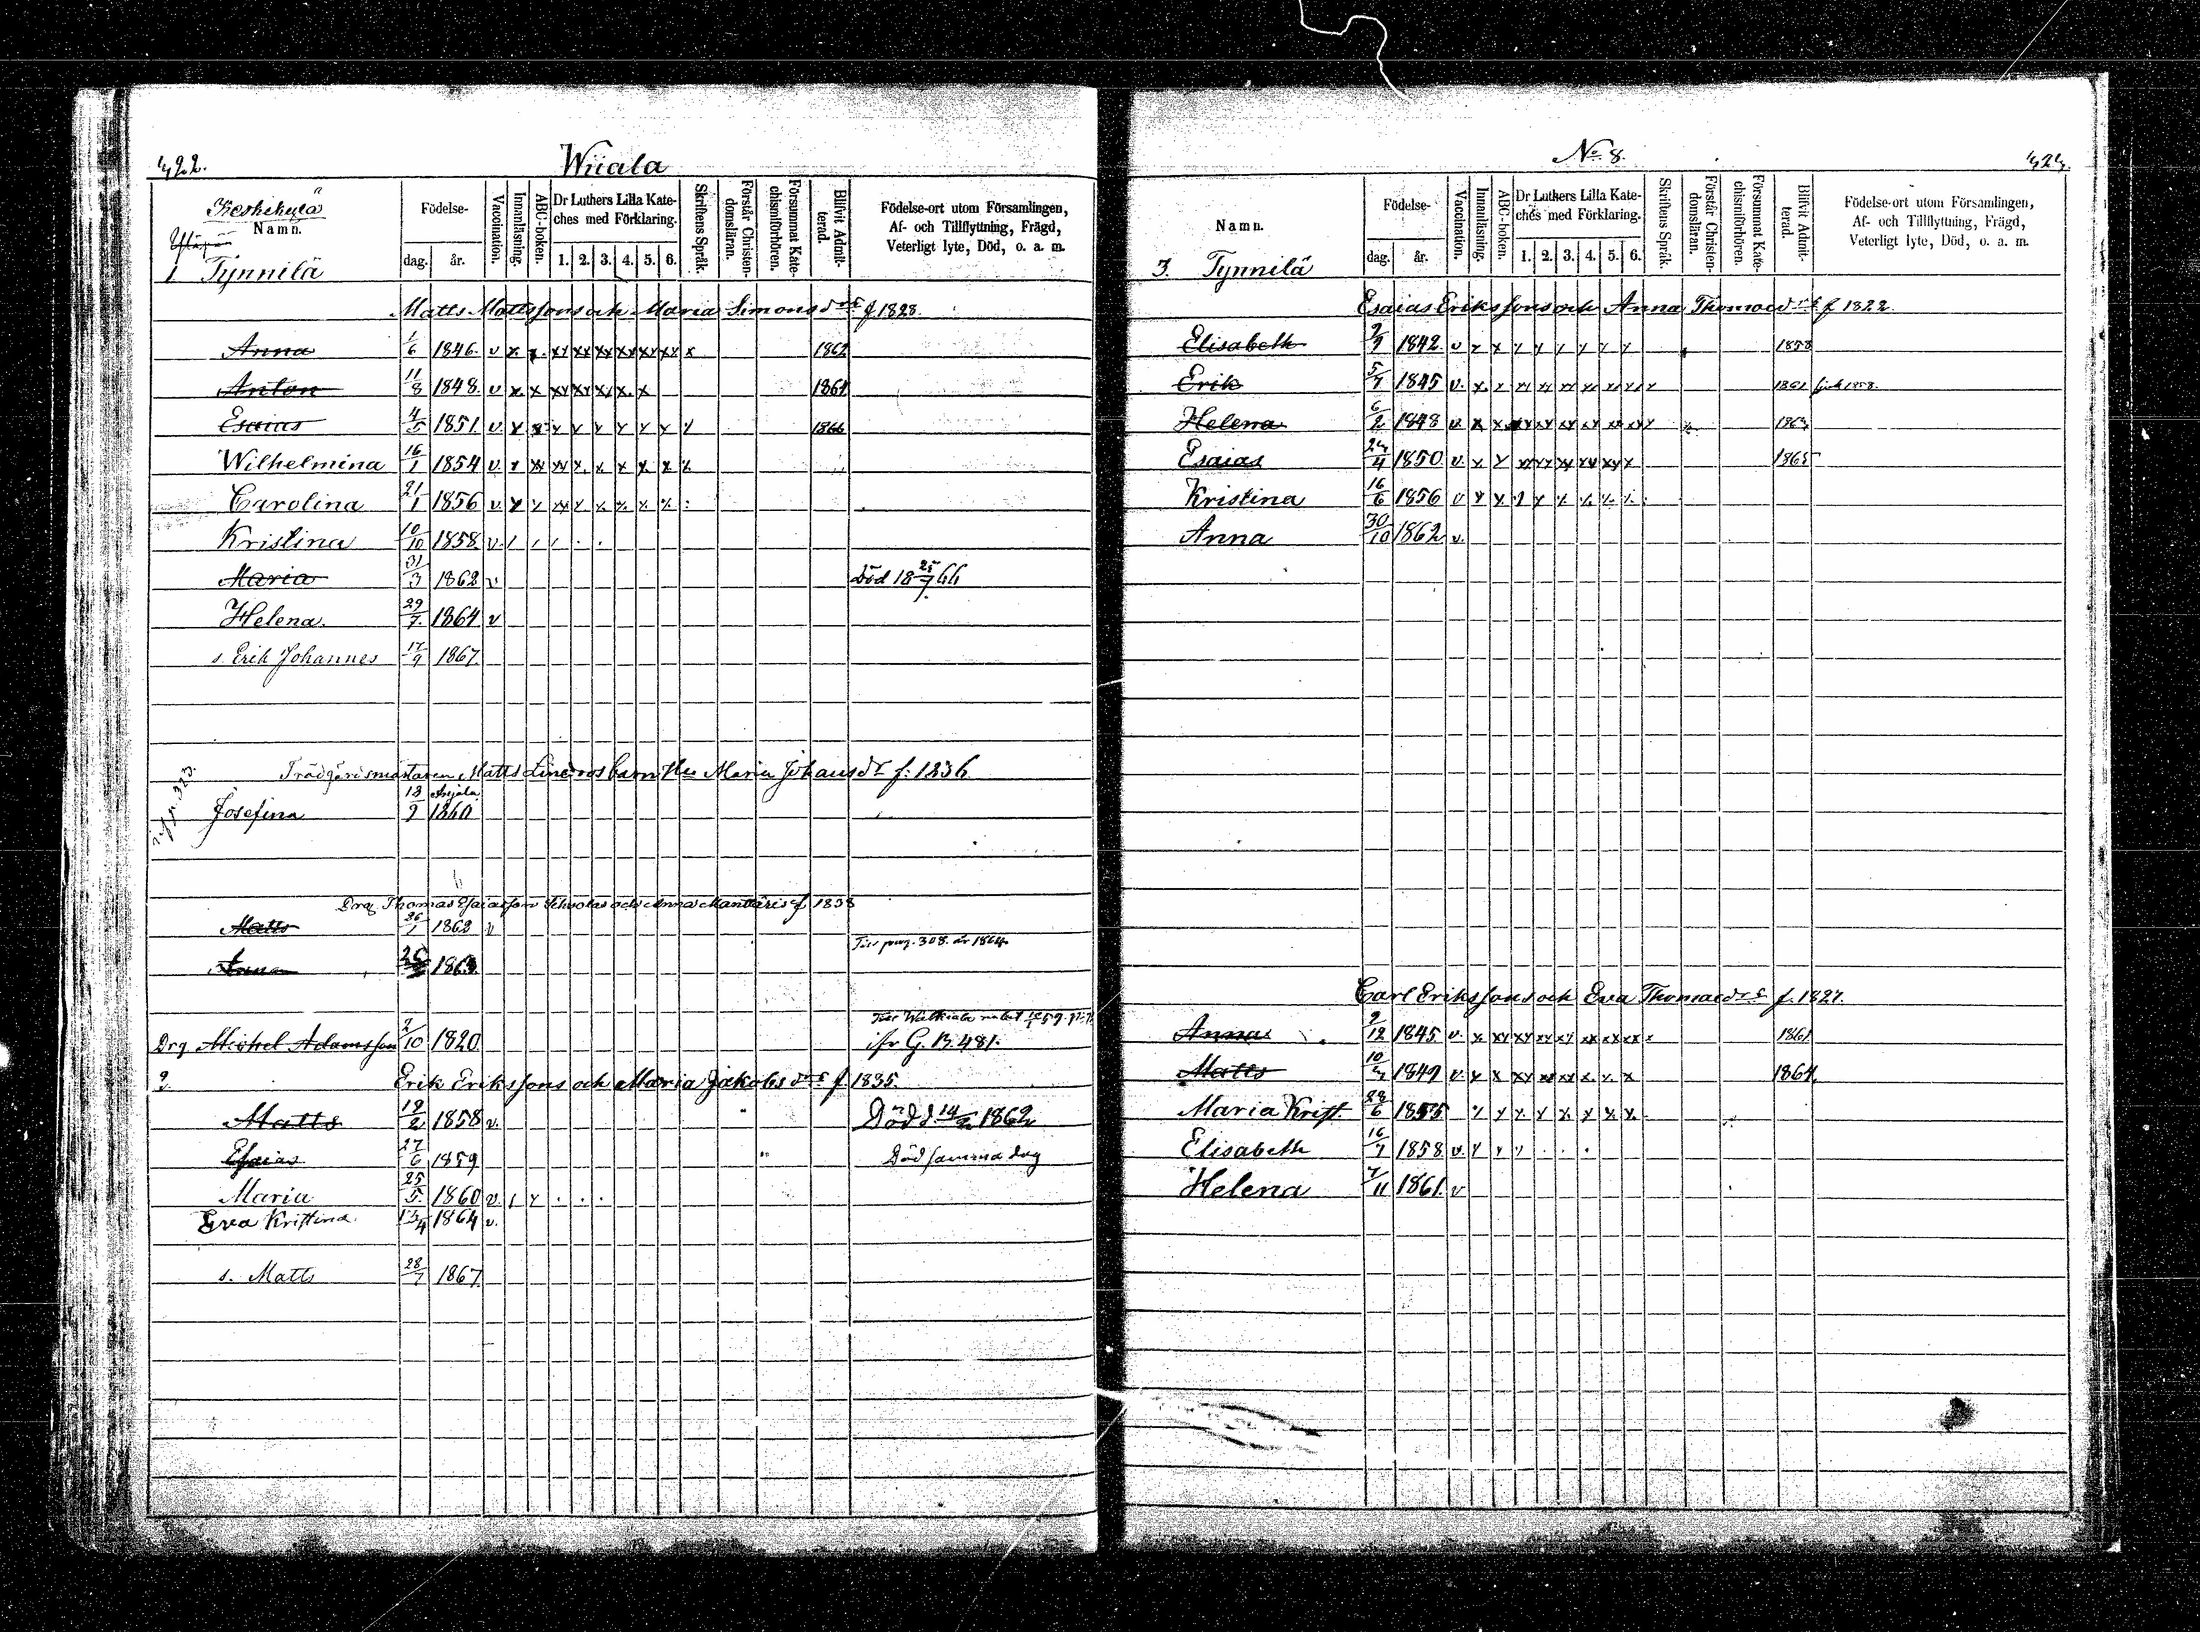 422.
Wiiala
Keskikylä
Namn.
1 Tynnilä
Födelse-
dag.
år.
Vaccination.
Innanläsning.
ABC-boken.
Dr Luthers Lilla Kateches med Förklaring.
1. 2. 3. 4. 5. 6.
Skriftens Språk.
Förstår Christendomsläran.
Försummat Katechismiförhören.
Blifvit Admitterad.
Födelse-ort utom Församlingen,
Af- och Tillflyttning, Frägd,
Veterligt lyte, Död, o. a. m.
Matts Mattssons och Maria Simonsdrs f 1828.
Anna 1/6 1846. v x x. xx xx xx xx xx xx x 1862
Anton 11/8 1848. v x. x xx xx xx x. x 1864
Esaias 4/5 1851. v. x x x x x x x x x 1866
Wilhelmina 16/1 1854 v. x xx xx x. x x x x x
Carolina 21/1 1856 v. x x xx x x. x. x. x. :
Kristina 10/10 1858. v. / / / . .
Maria 31/3 1862 v. Död 18 25/7 66
Helena. 29/7. 1864 v
s. Erik Johannes 17/9 1867.
Trädgårdsmästaren Matts Lindros barn Hu Maria Johansdr f: 1836
Josefina 18/9 Anjala 1860
Drg Thomas Esaiasson och Anna f 1838
Matts 26/1 1862 v
Anna 26 1863
Tvr pag. 308. år 1864.
Drg Michel Adamsson 2/10 1820
G. B. 481.
2. Erik Erikssons och Maria Jakobsdrs f 1835.
Matts 19/2 1858 v. Död d 14/2 1862
Esaias 27/6 1859 Död samma dag
Maria 25/5. 1860 v. / x . . .
Eva Kristina 1864 v.
s. Matts 28/7 1867.
No. 8.
424.
Namn.
3. Tynnilä
Födelse-
dag.
år.
Vaccination.
Innanläsning.
ABC-boken.
Dr Luthers Lilla Kateches med Förklaring.
1. 2. 3. 4. 5. 6.
Skriftens Språk.
Förstår Christendomsläran.
Försummat Katechismiförhören.
Blifvit Admitterad.
Födelse-ort utom Församlingen,
Af- och Tillflyttning, Frägd,
Veterligt lyte, Död, o. a. m.
Esaias Erikssons och Anna Thomaedrs f 1822.
Elisabeth 9/9 1842 v x x x x x x x x 1858
Erik 5/7 1845 v. x. x xx xx xx xx xx xx x 1861
Helena 6/2 1848 v. x x xx xx xx xx xx xx x 1864
Esaias 24/4 1850 v. x x xx xx xx xx xx x 1865
Kristina 16/6 1856 v x x x x x x. x. x.
Anna 30/10 1862 v.
Carl Erikssons och Eva Thomaedrs f. 1827.
Anna 9/12 1845. v. x. xx xx xx xx xx xx xx x 1861
Matts 10/4 1849 v. x x xx xx xx x. x. x 1864.
Maria Krist. 28/6 1855 x x x. x x. x x x.
Elisabeth 16/7 1858 v. x x x . . .
Helena 7/11 1861. v